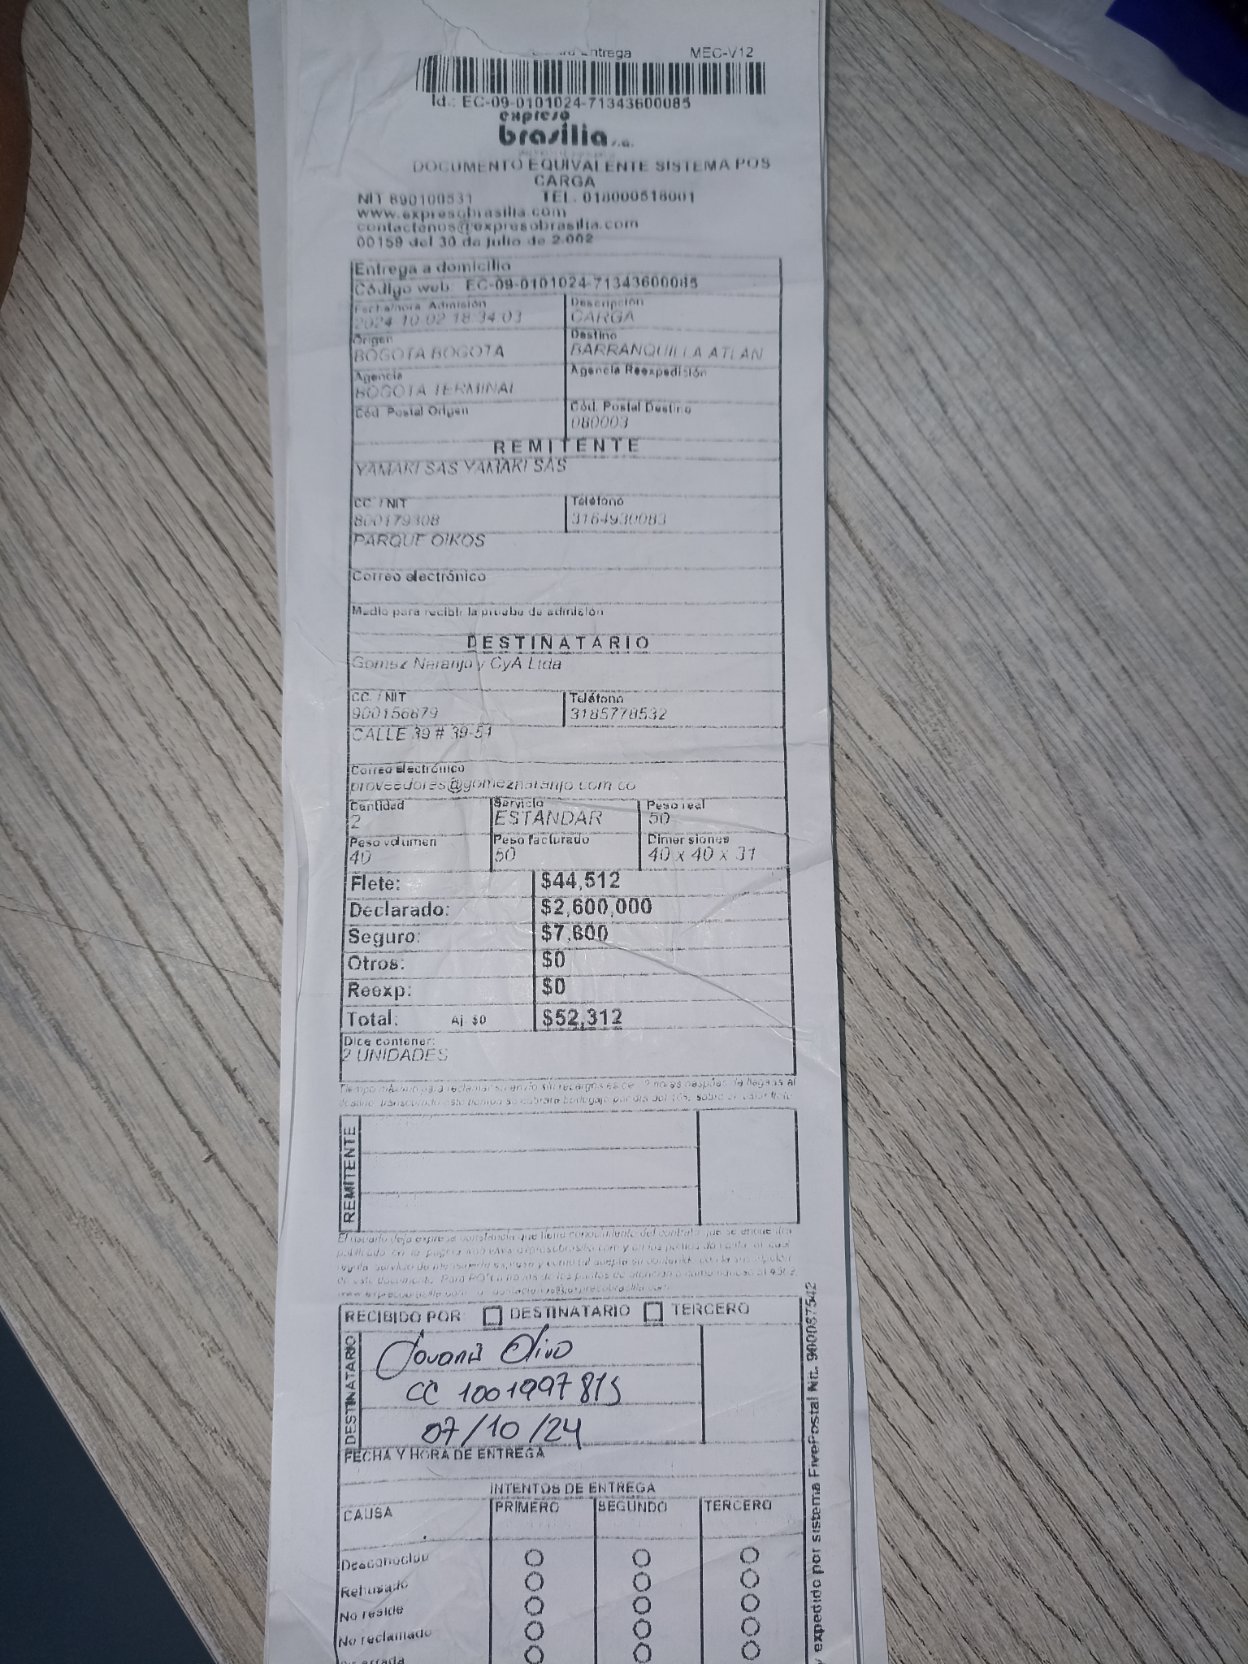 Entrega MEC-V12
Id.: EC-09-0101024-71343600085
expreso
brasilia s.a.
DOCUMENTO EQUIVALENTE SISTEMA POS
CARGA
NIT 890100531 TEL. 018000518001
www.expresobrasilia.com
contactenos@expresobrasilia.com
00159 del 30 de julio de 2.002
Entrega a domicilio
Código web EC-09-0101024-71343600085
Fecha/hora Admisión Descripción
2024-10-02 18:34:03 CARGA
Origen Destino
BOGOTA BOGOTA BARRANQUILLA ATLAN
Agencia Agencia Reexpedición
BOGOTA TERMINAL
Cód. Postal Origen Cód. Postal Destino
080003
REMITENTE
YAMAKI SAS YAMAKI SAS
CC. / NIT Teléfono
800179308 3164930083
PARQUE OIKOS
Correo electrónico
Medio para recibir la prueba de admisión
DESTINATARIO
Gomez Naranjo y CyA Ltda
CC. / NIT Teléfono
900156879 3185778532
CALLE 39 # 39-51
Correo electrónico
proveedores@gomeznaranjo.com.co
Cantidad Servicio Peso real
2 ESTANDAR 50
Peso volumen Peso facturado Dimensiones
40 50 40 x 40 x 31
Flete: $44,512
Declarado: $2,600,000
Seguro: $7,800
Otros: $0
Reexp: $0
Total: Aj $0 $52,312
Dice contener:
2 UNIDADES
REMITENTE
RECIBIDO POR DESTINATARIO TERCERO
DESTINATARIO
Olivo
CC 1001997815
07/10/24
FECHA Y HORA DE ENTREGA
INTENTOS DE ENTREGA
CAUSA PRIMERO SEGUNDO TERCERO
Desconocido
Rehusado
No reside
No reclamado
y expedido por sistema FivePostal Nit. 900087542